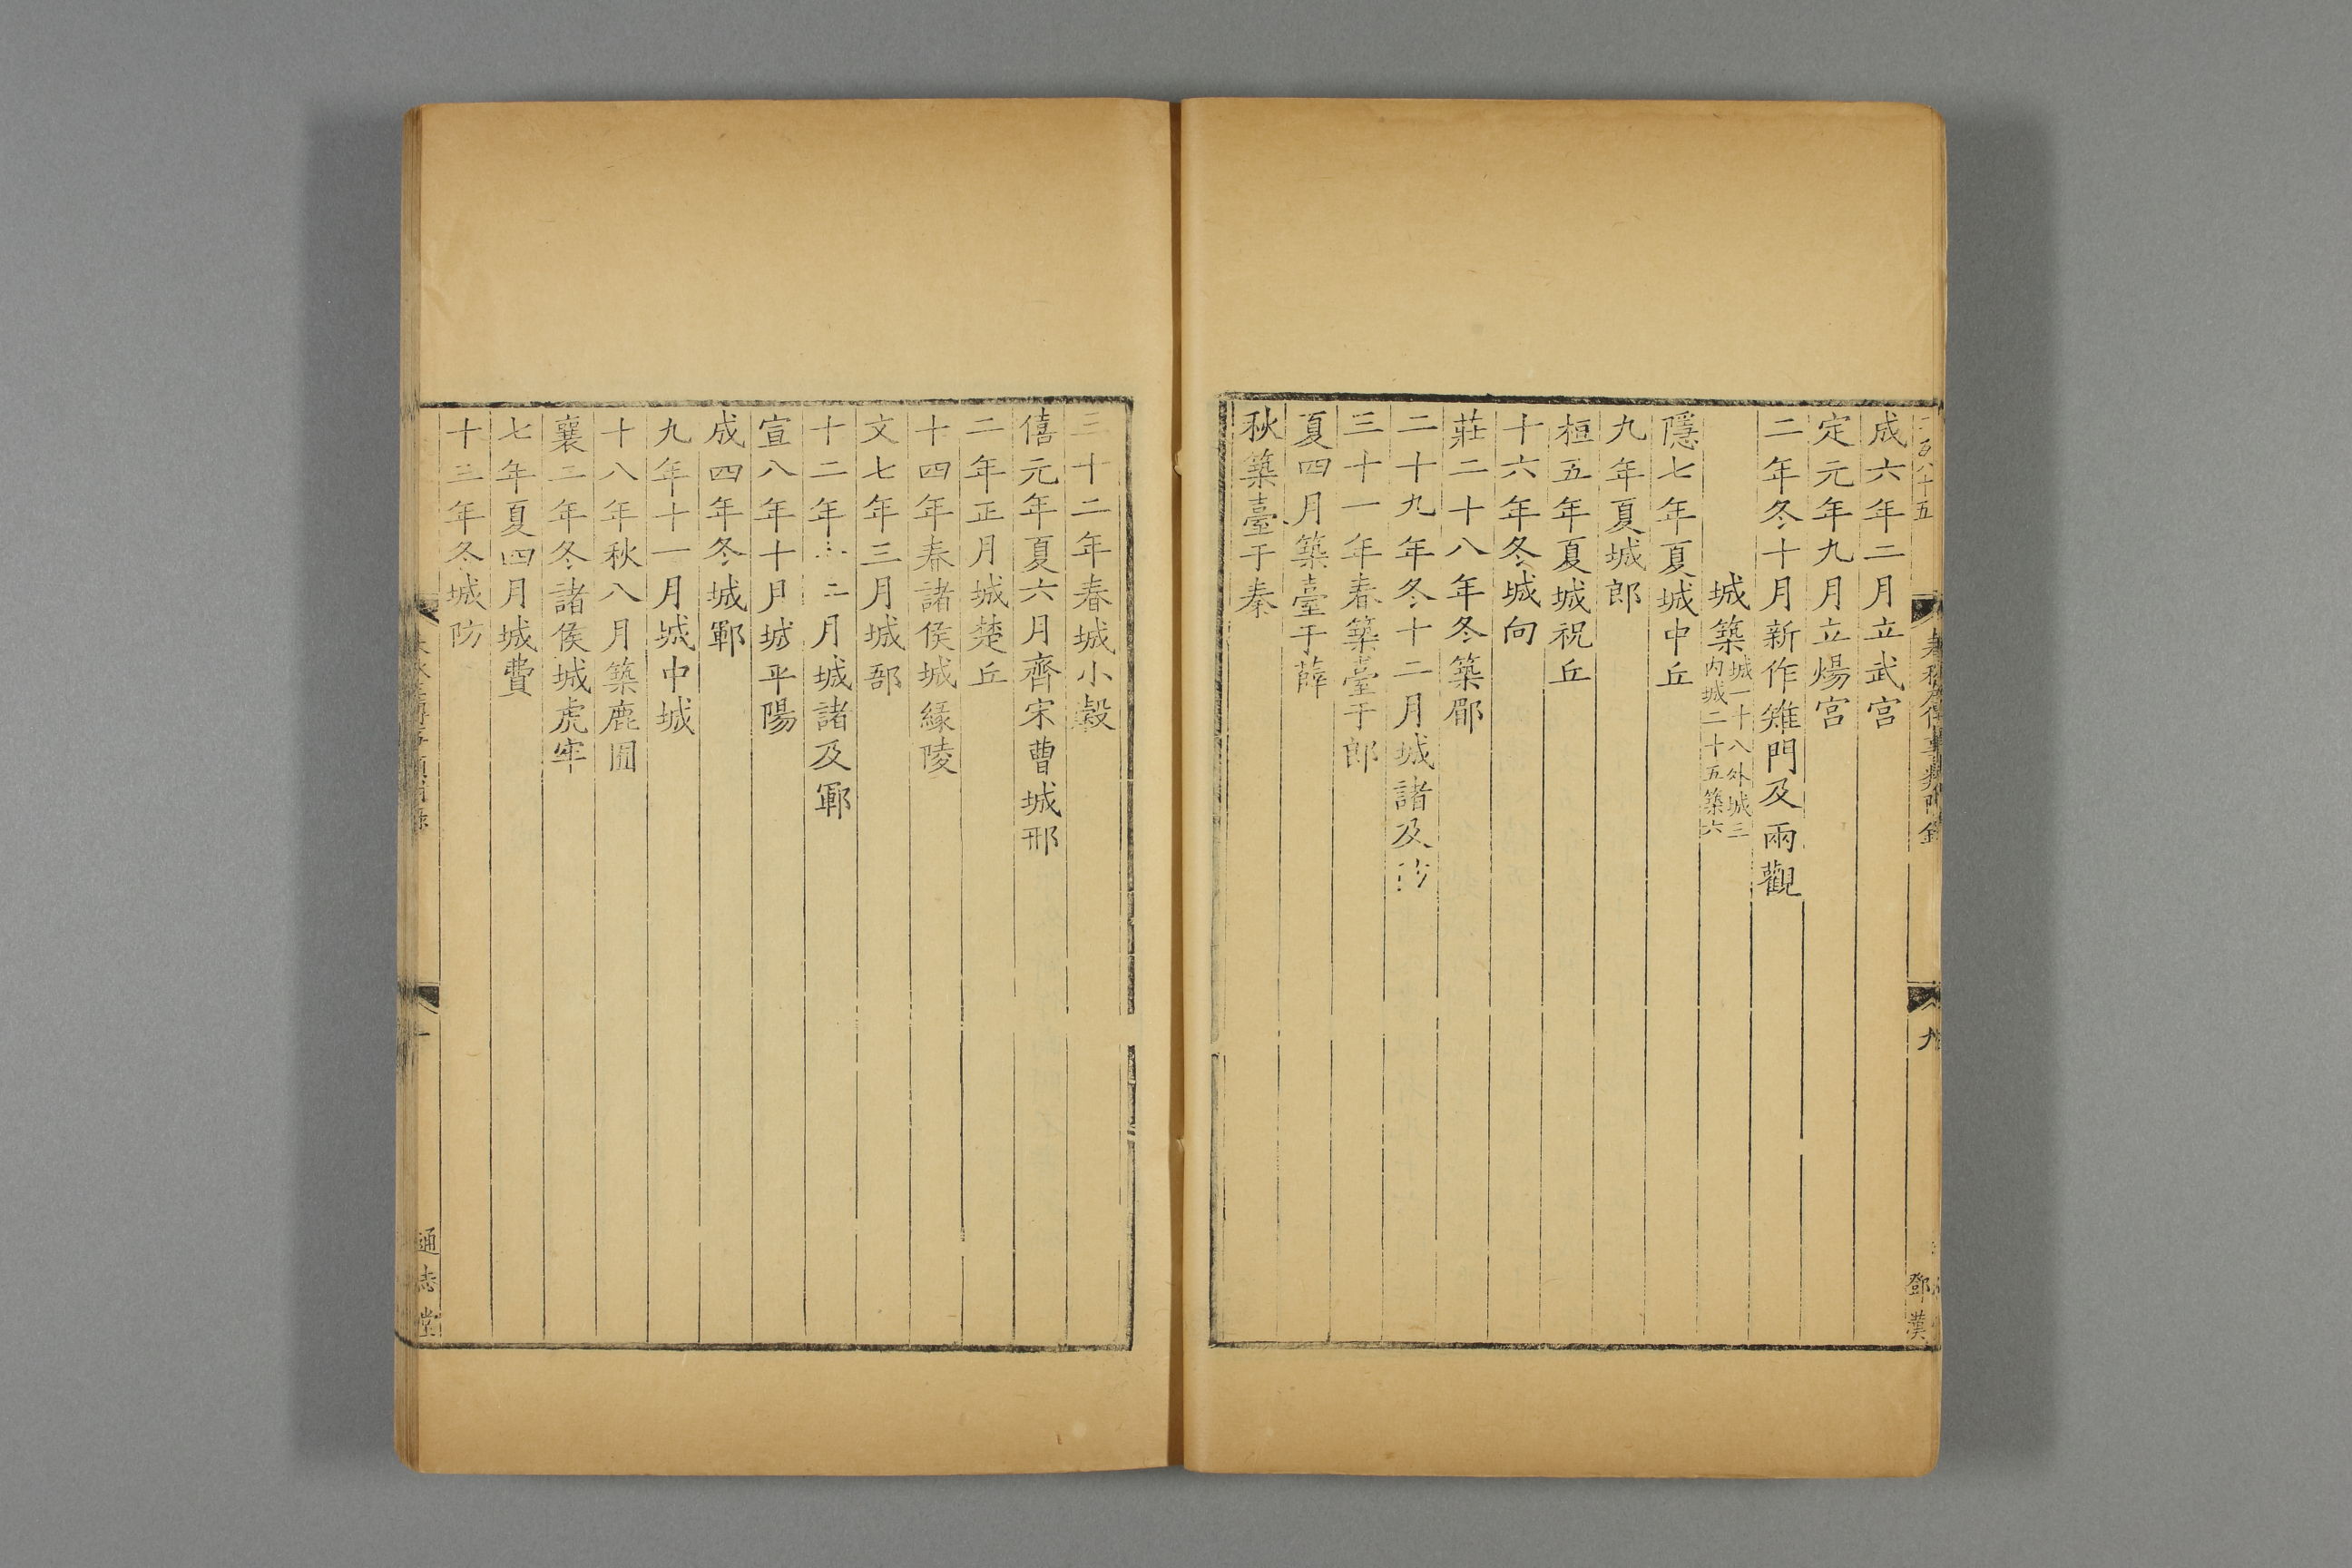 成六年二月立武宮
定元年九月立煬宮
二年冬十月新作雉門及兩觀
城築城一十八外城三內城二十五築六
隱七年夏城中丘
九年夏城郎
桓五年夏城祝丘
十六年冬城向
莊二十八年冬築郿
二十九年冬十二月城諸及
三十一年春築臺于郎
夏四月築臺于薛
秋築臺于秦
三十二年春城小穀
僖元年夏六月齊宋曹城邢
二年正月城楚丘
十四年春諸侯城緣陵
文七年三月城郚
十二年十二月城諸及鄆
宣八年十月城平陽
成四年冬城鄆
九年十一月城中城
十八年秋八月築鹿囿
襄二年冬諸侯城虎牢
七年夏四月城費
十三年冬城防
通志堂
鄧漢